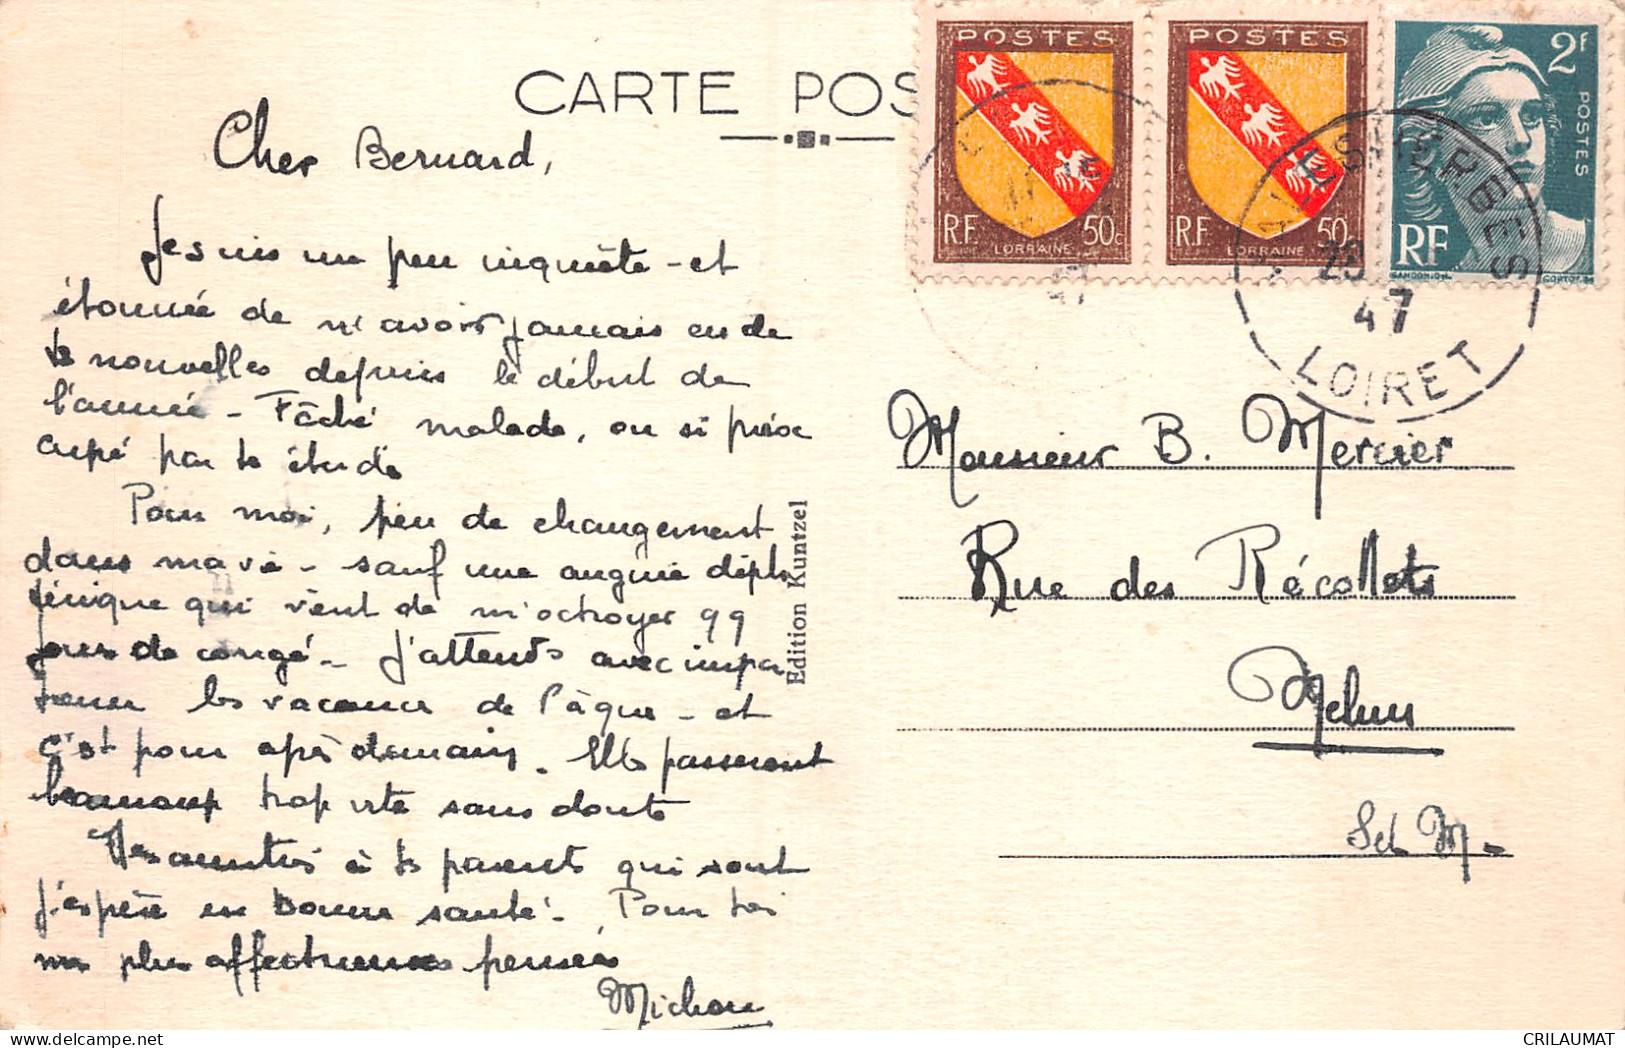 CARTE POS
POSTES
RF
50c
LORRAINE
POSTES
RF
50c
LORRAINE
2F
POSTES
RF
GANDON
CORTOT
47
LOIRET
Cher Bernard,
Je suis un peu inquiète - et
étonnée de n'avoir jamais eu de
tes nouvelles depuis le début de
l'année - Fâché malade, ou si préoc
cupé par tes études
Pour moi, peu de changement
dans ma vie - sauf une angine diph
térique qui vient de m'octroyer 99
jours de congé - J'attends avec impa
tience les vacances de Pâques - et
c'est pour après demain. Elles passeront
beaucoup trop vite sans doute
Mes amitiés à tes parents qui sont
j'espère en bonne santé. Pour toi
mes plus affectueuses pensées
Michou
Edition Kuntzel
Monsieur B. Mercier
Rue des Récollets
Melun
S et M -
CRILAUMAT